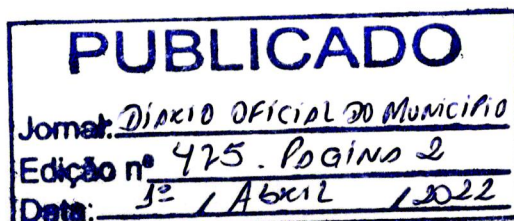 PUBLICADO
Jornal: DIÁRIO OFICIAL DO MUNICÍPIO
Edição nº 425. PAGINA 2
Data: 1º / ABRIL / 2022